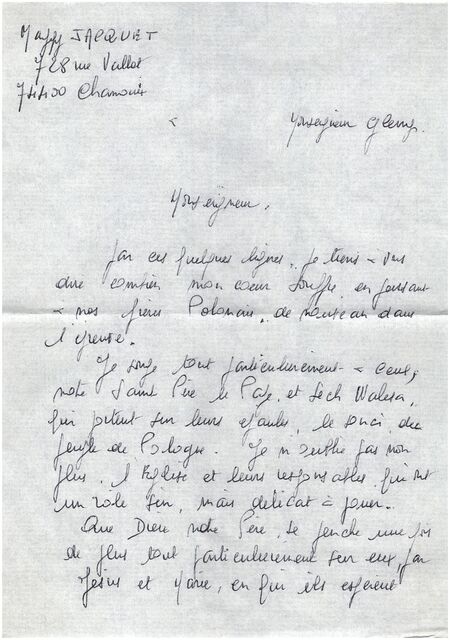 Maggy JACQUET
728 rue Vallot
74400 Chamonix
Monseigneur Glemp.
Monseigneur,
Par ces quelques lignes, je tiens à vous
dire combien mon coeur souffre en pensant
à nos frères Polonais, de nouveau dans
l'épreuve.
Je songe tout particulièrement à ceux,
notre Saint Père le Pape, et Lech Walesa,
qui portent sur leurs épaules, le souci du
peuple de Pologne. Je n'oublie pas non
plus, l'Eglise et leurs responsables, qui ont
un rôle sûr, mais délicat à jouer.
Que Dieu notre Père, se penche une fois
de plus tout particulièrement sur eux, par
Jésus et Marie, en qui ils espèrent